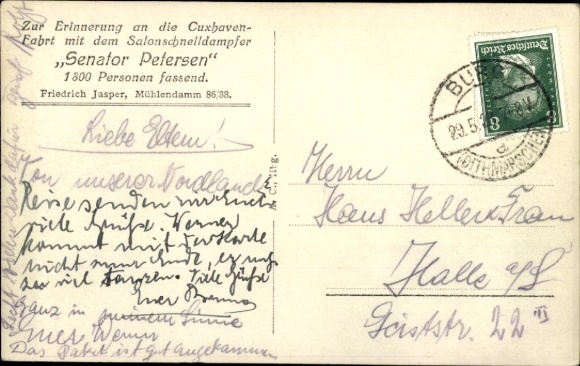 Zur Erinnerung an die Cuxhaven-
Fahrt mit dem Salonschnelldampfer
„Senator Petersen"
1800 Personen fassend.
Friedrich Jasper, Mühlendamm 86/88.
Liebe Eltern!
Von unserer Nordland
Reise senden wir Euch
viele Grüße. Werner
kommt mit der Karte
nicht zum Ende, er muß
so viel tanzen. Viele Grüße
Euer Bruno
Ganz in Sinne
Euer Werner
Das Paket ist gut angekommen
Deutsches Reich
8 8
BURG
29.5.
(DITHMARSCHEN)
Herrn
Hans Heller u. Frau
Halle a/S
Geiststr. 22 II